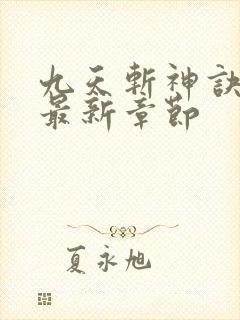 九天斬神訣
最新章節
夏永旭